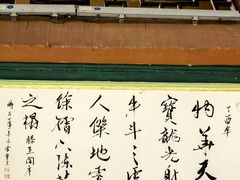 丁酉年
物華天
寶龍光射
牛斗之
人傑地靈
徐孺下陳
之榻 滕王閣序